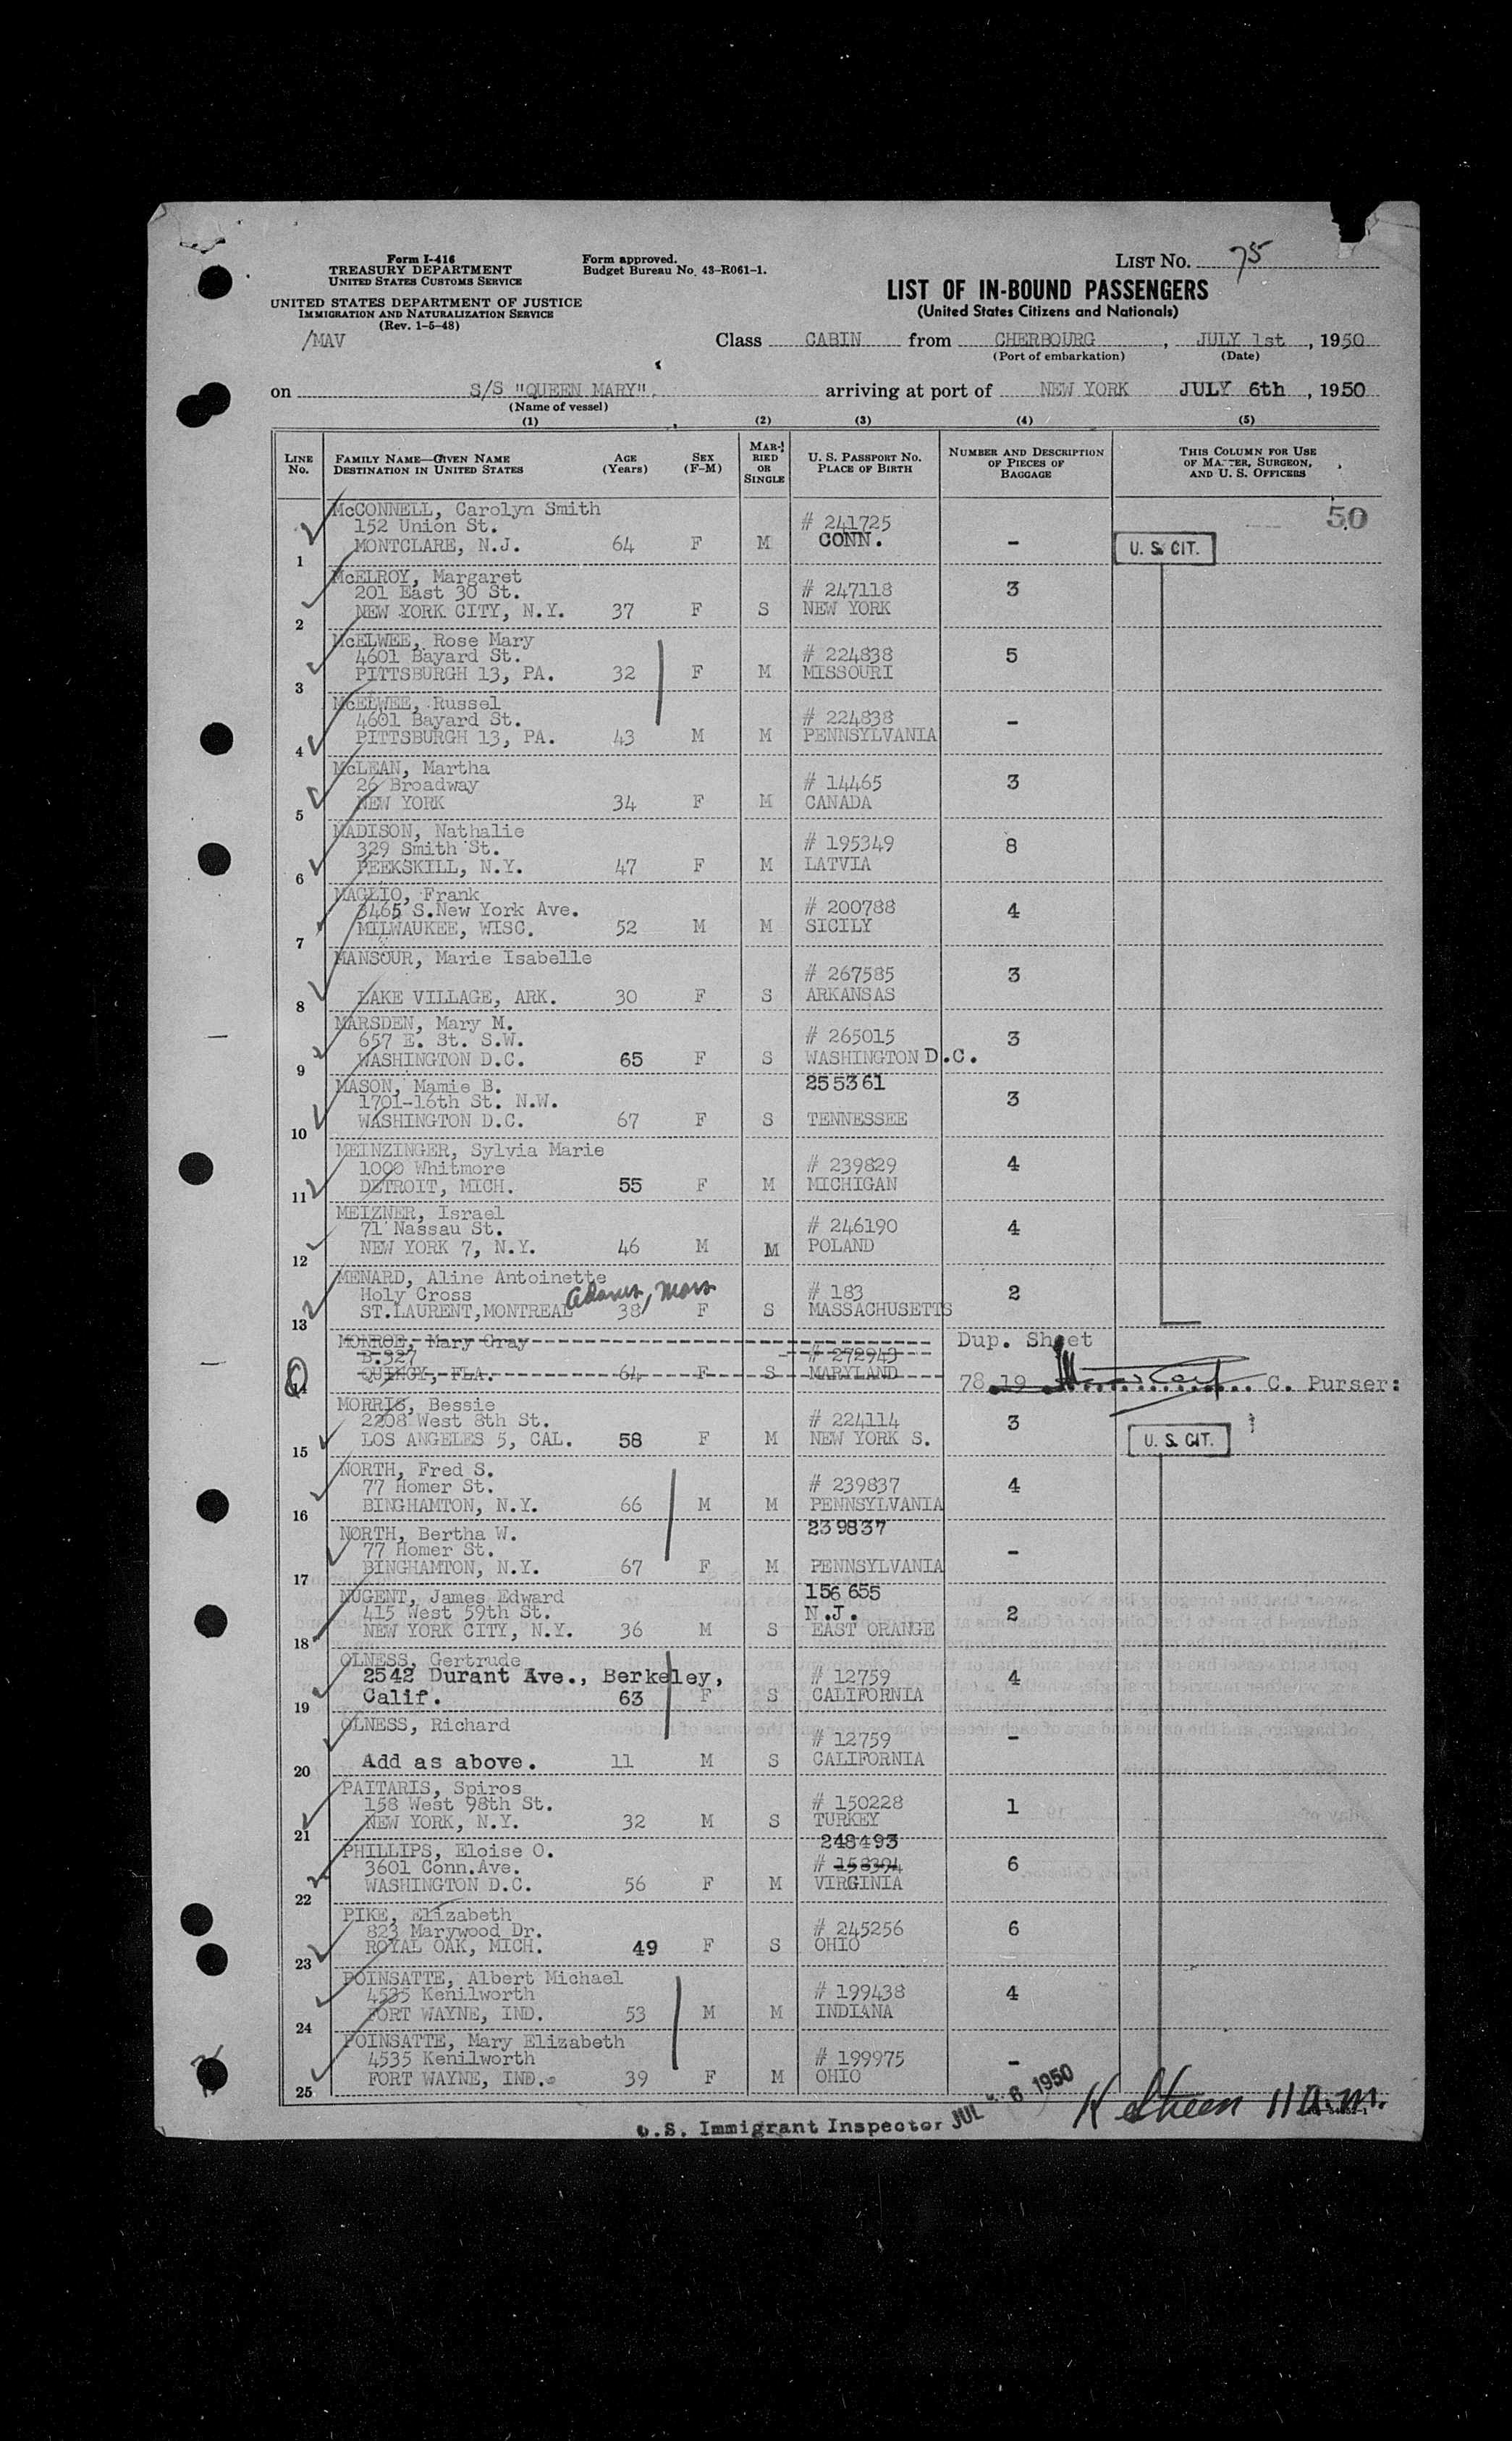 Form I-416
TREASURY DEPARTMENT
UNITED STATES CUSTOMS SERVICE
UNITED STATES DEPARTMENT OF JUSTICE
IMMIGRATION AND NATURALIZATION SERVICE
(Rev. 1-5-48)
/MAV
Form approved.
Budget Bureau No. 43-R061-1.
LIST NO. 75
LIST OF IN-BOUND PASSENGERS
(United States Citizens and Nationals)
Class CABIN from CHERBOURG, JULY 1st, 1950
(Port of embarkation) (Date)
on S/S "QUEEN MARY". arriving at port of NEW YORK JULY 6th, 1950
(Name of vessel)
(1) (2) (3) (4) (5)
LINE No. FAMILY NAME—GIVEN NAME DESTINATION IN UNITED STATES AGE (Years) SEX (F-M) MARRIED OR SINGLE U. S. PASSPORT NO. PLACE OF BIRTH NUMBER AND DESCRIPTION OF PIECES OF BAGGAGE THIS COLUMN FOR USE OF MASTER, SURGEON, AND U. S. OFFICERS
50
McCONNELL, Carolyn Smith
152 Union St. # 241725
1 MONTCLARE, N.J. 64 F M CONN. - U. S. CIT.
McELROY, Margaret
201 East 30 St. # 247118 3
2 NEW YORK CITY, N.Y. 37 F S NEW YORK
McELWEE, Rose Mary
4601 Bayard St. # 224838 5
3 PITTSBURGH 13, PA. 32 F M MISSOURI
McELWEE, Russel
4601 Bayard St. # 224838 -
4 PITTSBURGH 13, PA. 43 M M PENNSYLVANIA
McLEAN, Martha
26 Broadway # 14465 3
5 NEW YORK 34 F M CANADA
MADISON, Nathalie
329 Smith St. # 195349 8
6 PEEKSKILL, N.Y. 47 F M LATVIA
MAGLIO, Frank
3465 S.New York Ave. # 200788 4
7 MILWAUKEE, WISC. 52 M M SICILY
MANSOUR, Marie Isabelle
# 267585 3
8 LAKE VILLAGE, ARK. 30 F S ARKANSAS
MARSDEN, Mary M.
657 E. St. S.W. # 265015 3
9 WASHINGTON D.C. 65 F S WASHINGTON D.C.
MASON, Mamie B. 255361
1701-16th St. N.W. 3
10 WASHINGTON D.C. 67 F S TENNESSEE
MEINZINGER, Sylvia Marie
1000 Whitmore # 239829 4
11 DETROIT, MICH. 55 F M MICHIGAN
MEIZNER, Israel
71 Nassau St. # 246190 4
12 NEW YORK 7, N.Y. 46 M M POLAND
MENARD, Aline Antoinette
Holy Cross Adams, Mass # 183 2
13 ST.LAURENT,MONTREAL 38 F S MASSACHUSETTS
MONROE, Mary Gray Dup. Sheet
B.327 # 272943
14 QUINCY, FLA. 64 F S MARYLAND 78.19 C. Purser:
MORRIS, Bessie
2208 West 8th St. # 224114 3
15 LOS ANGELES 5, CAL. 58 F M NEW YORK S. U. S. CIT.
NORTH, Fred S.
77 Homer St. # 239837 4
16 BINGHAMTON, N.Y. 66 M M PENNSYLVANIA
NORTH, Bertha W. 239837
77 Homer St. -
17 BINGHAMTON, N.Y. 67 F M PENNSYLVANIA
NUGENT, James Edward 156655
415 West 59th St. N.J. 2
18 NEW YORK CITY, N.Y. 36 M S EAST ORANGE
OLNESS, Gertrude
2542 Durant Ave., Berkeley, # 12759 4
19 Calif. 63 F S CALIFORNIA
OLNESS, Richard
# 12759 -
20 Add as above. 11 M S CALIFORNIA
PAITARIS, Spiros
158 West 98th St. # 150228 1
21 NEW YORK, N.Y. 32 M S TURKEY
PHILLIPS, Eloise O. 248493
3601 Conn.Ave. # 158394 6
22 WASHINGTON D.C. 56 F M VIRGINIA
PIKE, Elizabeth
823 Marywood Dr. # 245256 6
23 ROYAL OAK, MICH. 49 F S OHIO
POINSATTE, Albert Michael
4535 Kenilworth # 199438 4
24 FORT WAYNE, IND. 53 M M INDIANA
POINSATTE, Mary Elizabeth
4535 Kenilworth # 199975 -
25 FORT WAYNE, IND. 39 F M OHIO
U.S. Immigrant Inspector JUL 6 1950 11 a.m.